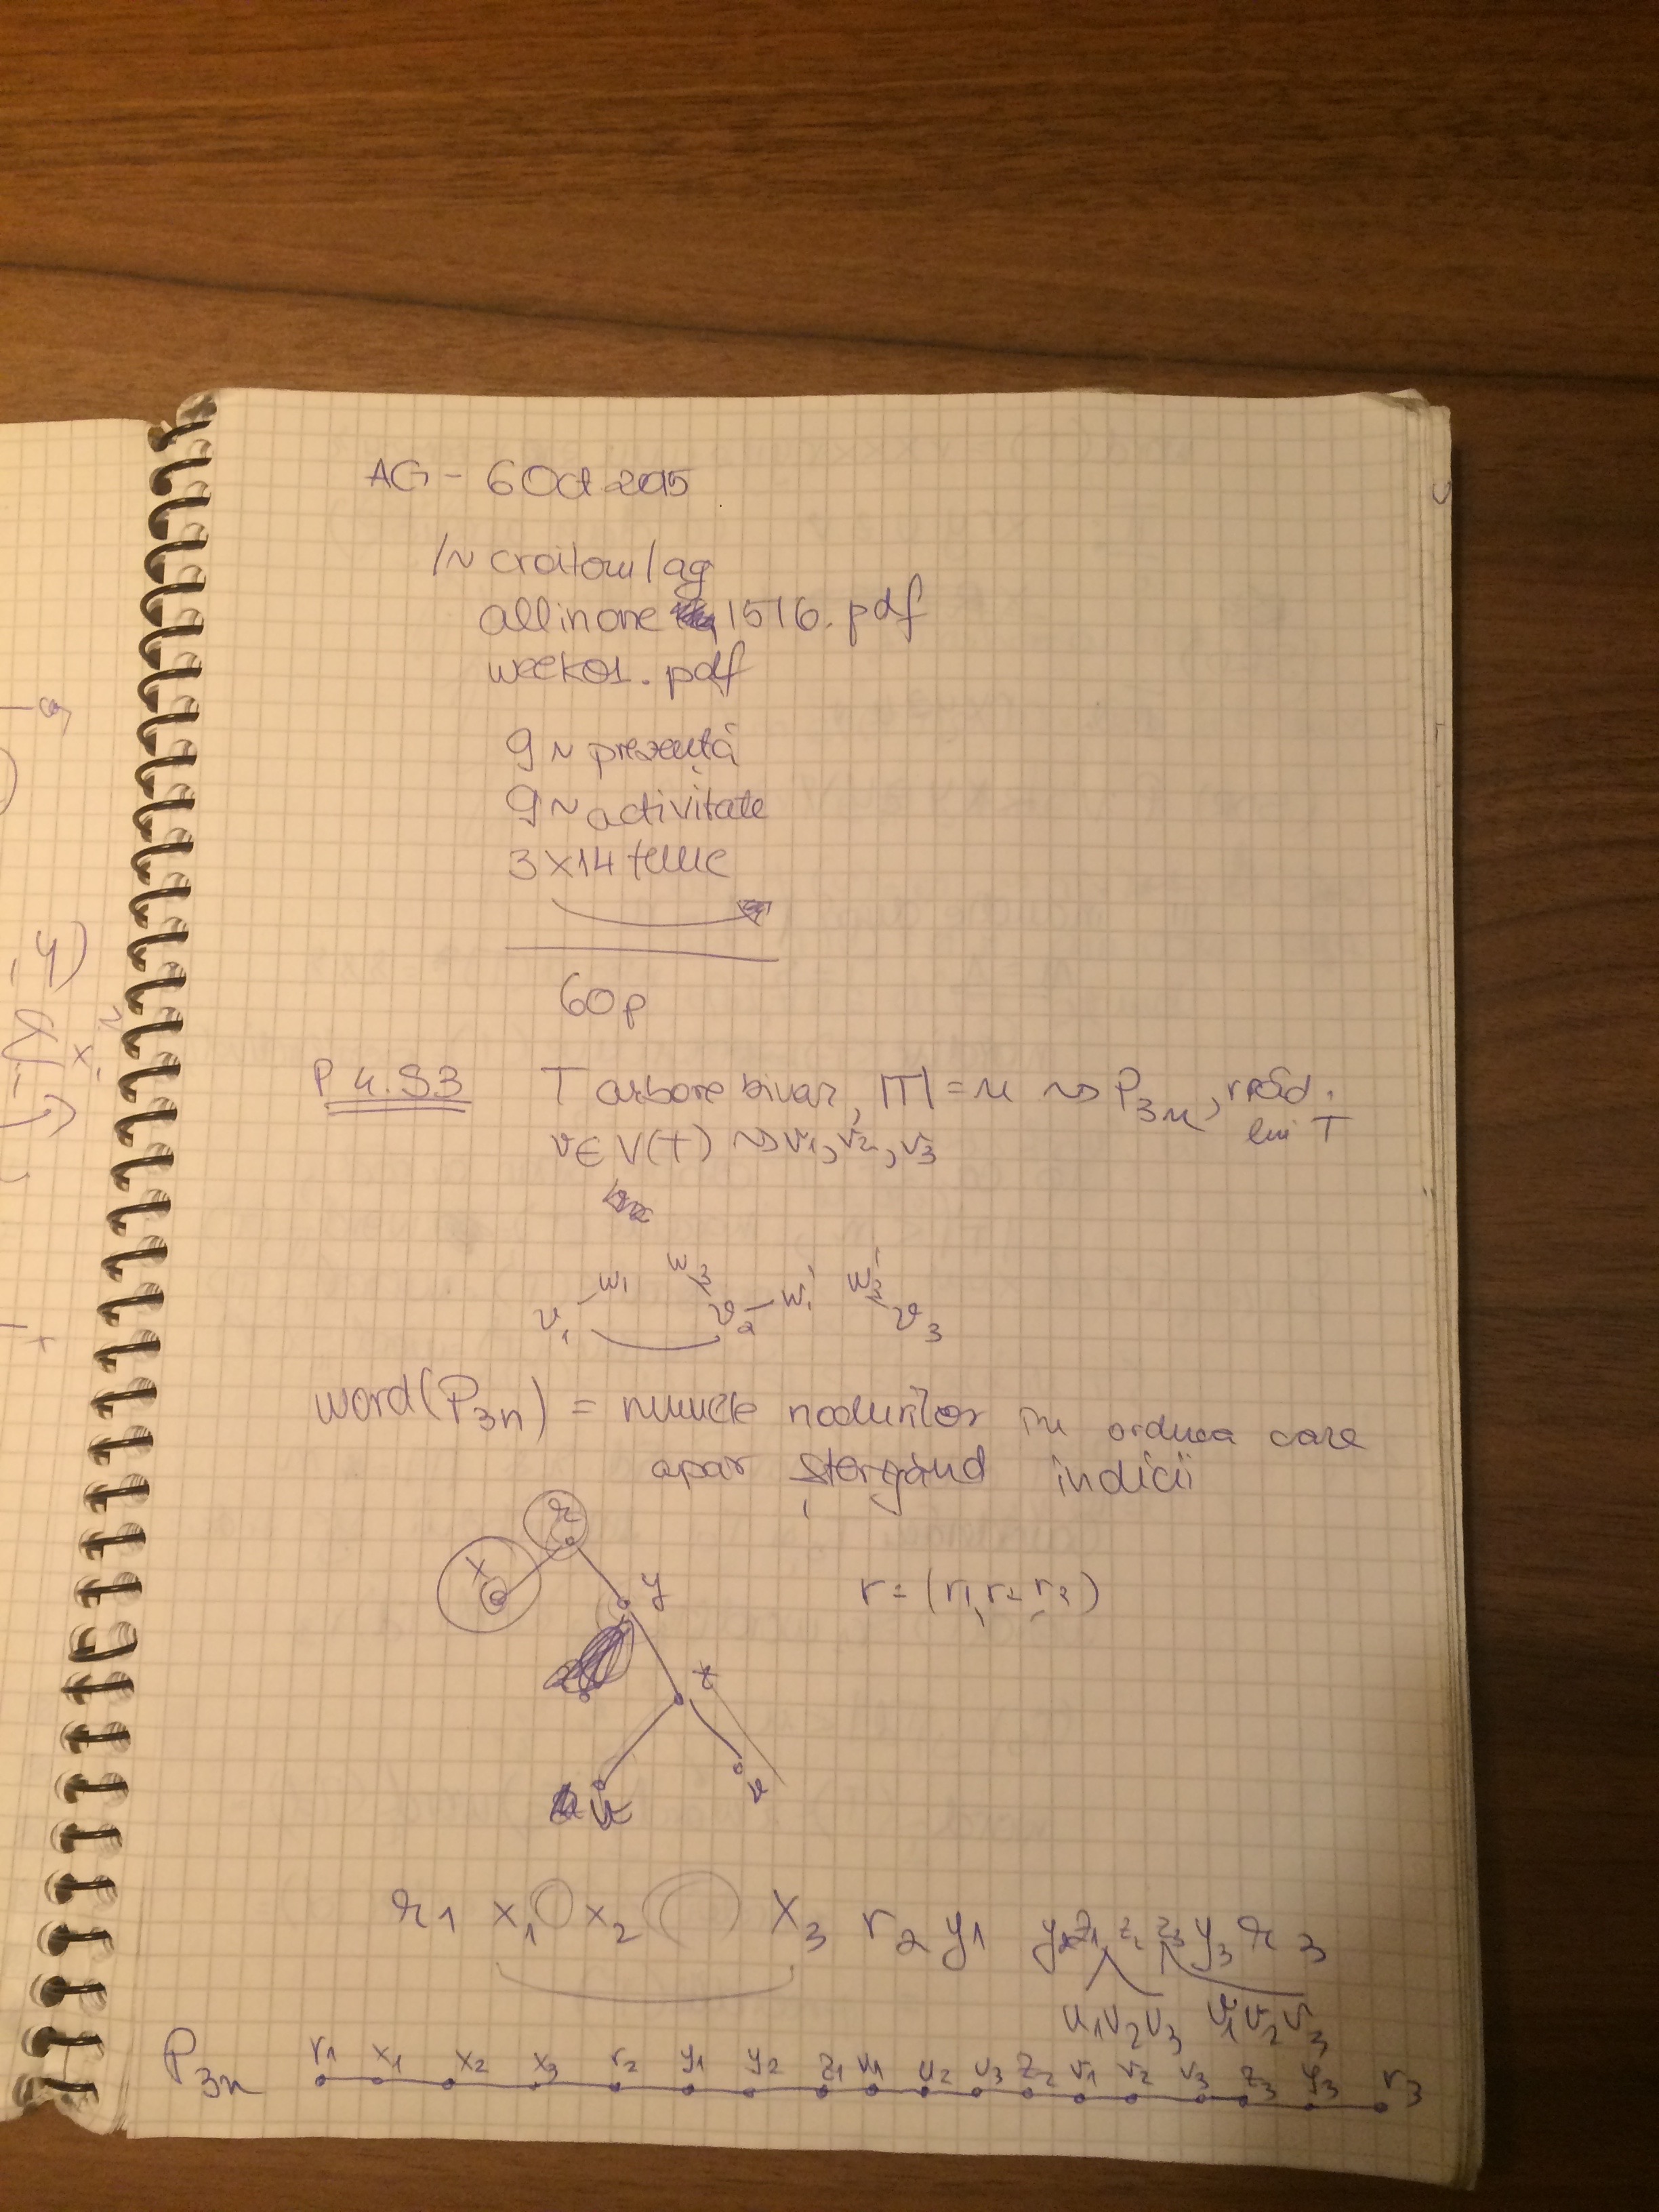 AG - 6 Oct 2015
/~ croitoru/ag
allinone 1516.pdf
week01.pdf
9 ~ prezență
9 ~ activitate
3 x 14 teme
60p
P 4. S3 T arbore binar, |T| = n ~> P3n, r răd. lui T
v ∈ V(T) ~> v1, v2, v3
v1 – w1 w3 v2 – w1' w3' v3
word(P3n) = numele nodurilor în ordinea care
apar ștergând indicii
r
x y r = (r1, r2 r3)
z
u v
r1 x1 x2 x3 r2 y1 y2 z1 z2 z3 y3 r3
u1 u2 u3 v1 v2 v3
P3n r1 x1 x2 x3 r2 y1 y2 z1 u1 u2 u3 z2 v1 v2 v3 z3 y3 r3